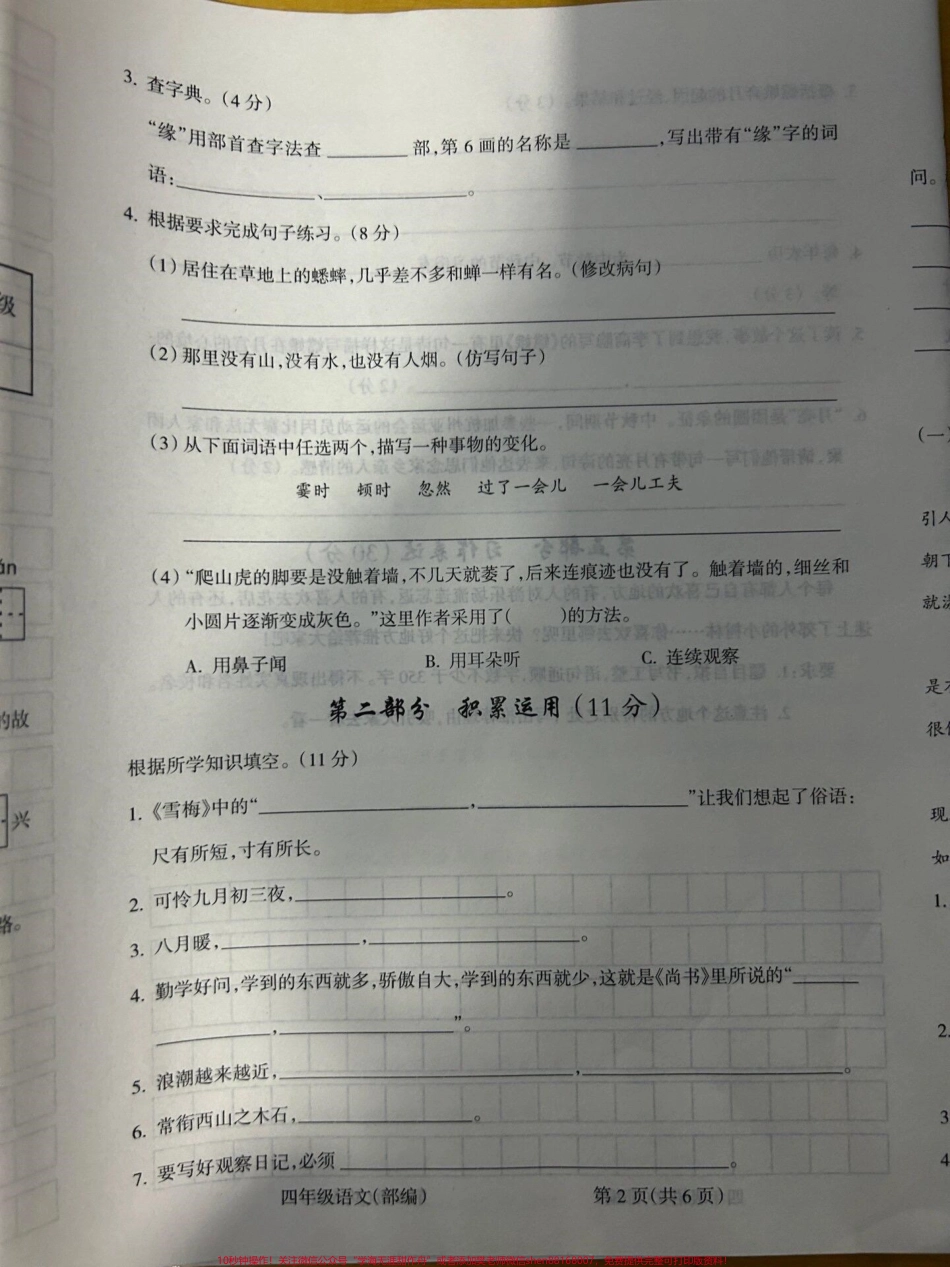 3. 查字典。(4分)
“缘”用部首查字法查________部,第6画的名称是________,写出带有“缘”字的词
问。
语:______________、______________。
4. 根据要求完成句子练习。(8分)
(1)居住在草地上的蟋蟀,几乎差不多和蝉一样有名。(修改病句)
级
(2)那里没有山,没有水,也没有人烟。(仿写句子)
(3)从下面词语中任选两个,描写一种事物的变化。
(一)
霎时 顿时 忽然 过了一会儿 一会儿工夫
引人
朝下
(4)“爬山虎的脚要是没触着墙,不几天就萎了,后来连痕迹也没有了。触着墙的,细丝和
就
小圆片逐渐变成灰色。”这里作者采用了( )的方法。
A. 用鼻子闻 B. 用耳朵听 C. 连续观察
是不
的故
第二部分 积累运用(11分)
很
根据所学知识填空。(11分)
1.《雪梅》中的“____________________,____________________”让我们想起了俗语:
现
兴
尺有所短,寸有所长。
如
2. 可怜九月初三夜,____________________。
1.
路。
3. 八月暖,______________,____________________。
4. 勤学好问,学到的东西就多,骄傲自大,学到的东西就少,这就是《尚书》里所说的“______
____________,________________”。
2.
5. 浪潮越来越近,____________________________,________________________。
6. 常衔西山之木石,________________。
3
7. 要写好观察日记,必须____________________________________。
4
四年级语文(部编) 第2页(共6页)